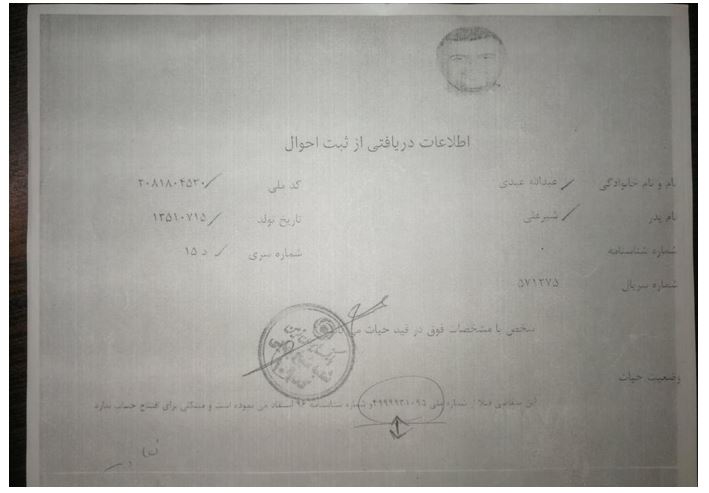 اطلاعات دریافتی از ثبت احوال
نام و نام خانوادگی عبدالله عبدی کد ملی ۲۰۸۱۸۰۴۵۳۰
نام پدر شیرعلی تاریخ تولد ۱۳۵۱۰۷۱۵
شماره شناسنامه ۰ شماره سری د ۱۵
شماره سریال ۵۷۱۲۷۵
شخص با مشخصات فوق در قید حیات می
وضعیت حیات
این متقاضی قبلا از شماره ملی ۴۹۹۹۹۳۱۰۹۵ و شماره شناسنامه ۹۶ استفاد می نموده است و مشکلی برای افتتاح حساب ندارد